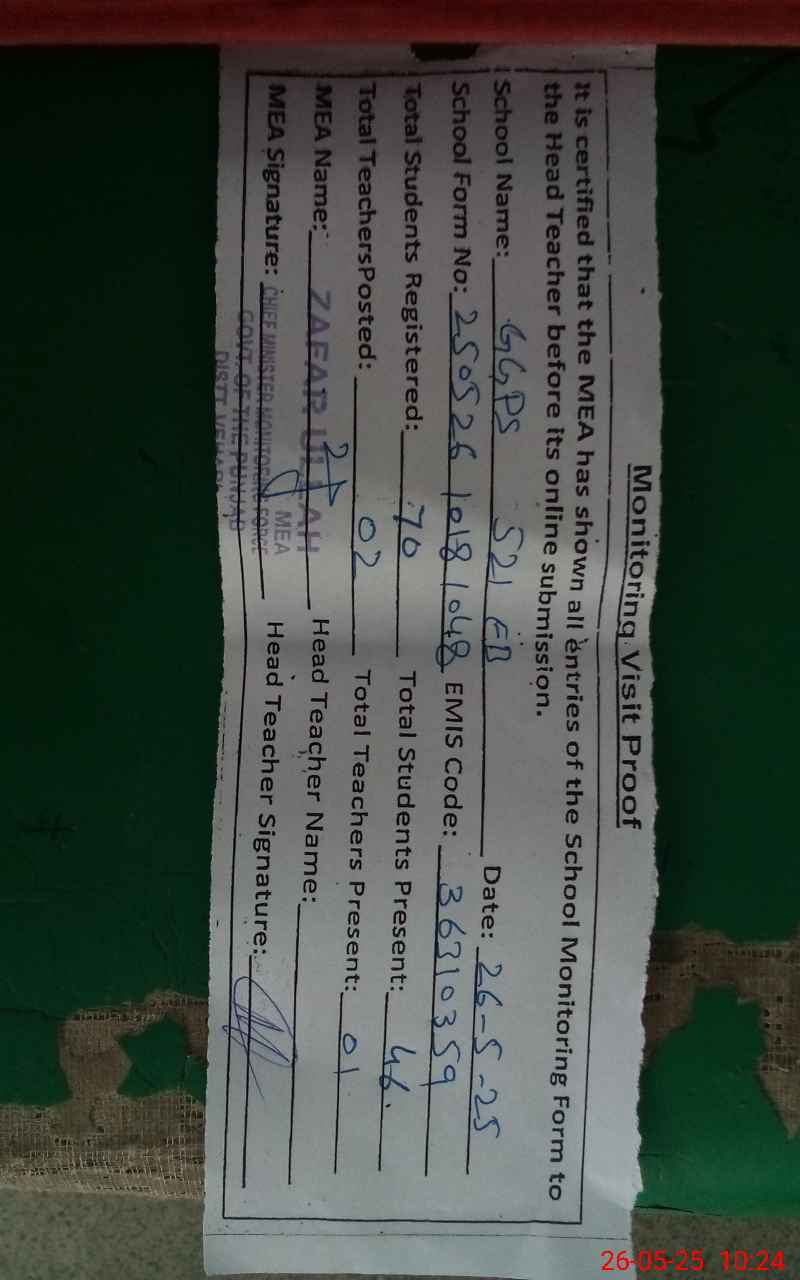 Monitoring Visit Proof
It is certified that the MEA has shown all entries of the School Monitoring Form to
the Head Teacher before its online submission.
School Name: GGPS 521 EB Date: 26-5-25
School Form No: 250526 10181048 EMIS Code: 36310359
Total Students Registered: 70 Total Students Present: 46.
Total TeachersPosted: 02 Total Teachers Present: 01
MEA Name: ZAFAR ULLAH Head Teacher Name:
MEA Signature: MEA Head Teacher Signature:
CHIEF MINISTER MONITORING FORCE
GOVT. OF THE PUNJAB
DISTT. VEHARI
26-05-25 10:24